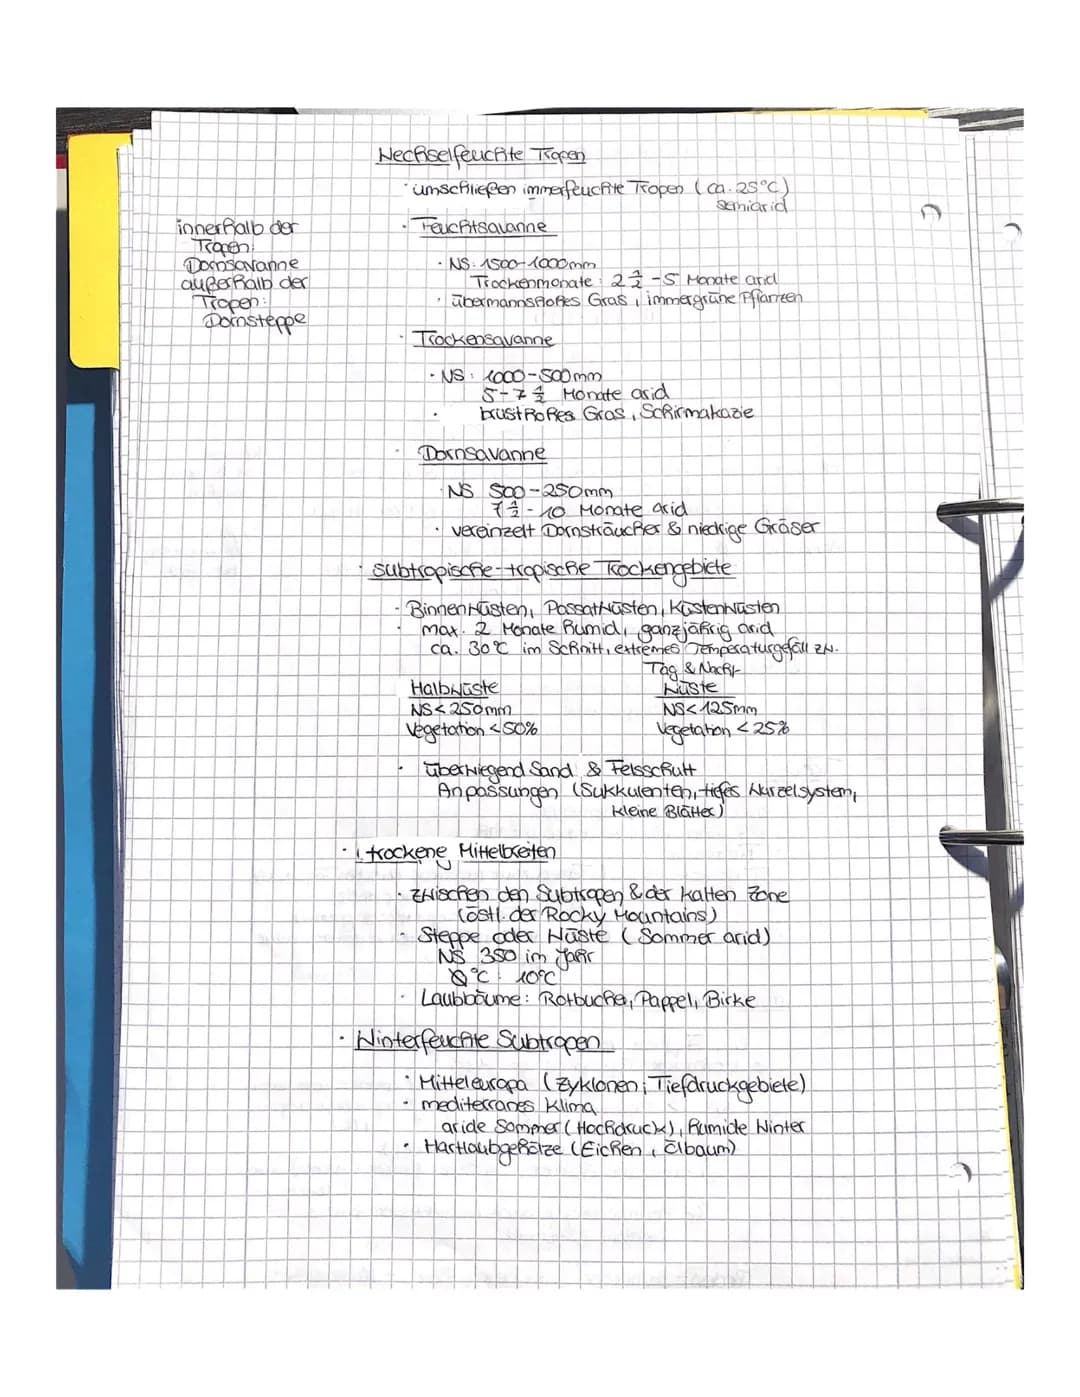 Wechselfeuchte Tropen
· umschließen immerfeuchte Tropen (ca. 25°C)
semiarid
innerhalb der
Tropen:
Dornsavanne
außerhalb der
Tropen:
Dornsteppe
· Feuchtsavanne
· NS: 1500-1000mm
Trockenmonate: 2 1/2 - 5 Monate arid
· übermannshohes Gras, immergrüne Pflanzen
· Trockensavanne
· NS: 1000-500mm
5-7 1/2 Monate arid
· brusthohes Gras, Schirmakazie
· Dornsavanne
· NS 500-250mm
7 1/2 - 10 Monate arid
· vereinzelt Dornsträucher & niedrige Gräser
· subtropische-tropische Trockengebiete
· Binnenwüsten, Passatwüsten, Küstenwüsten
· max. 2 Monate humid, ganzjährig arid
ca. 30°C im Schnitt, extremes Temperaturgefäll zw.
Tag & Nacht
Halbwüste Wüste
NS<250mm NS<125mm
Vegetation <50% Vegetation <25%
· überwiegend Sand & Felsschutt
Anpassungen (Sukkulenten, tiefes Wurzelsystem,
kleine Blätter)
· trockene Mittelbreiten
· zwischen den Subtropen & der kalten Zone
(östl. der Rocky Mountains)
· Steppe oder Wüste (Sommer arid)
NS 350 im Jahr
Ø°C: 10°C
· Laubbäume: Rotbuche, Pappel, Birke
· Winterfeuchte Subtropen
· Mitteleuropa (Zyklonen; Tiefdruckgebiete)
· mediterranes Klima
aride Sommer (Hochdruck), humide Winter
· Hartlaubgehölze (Eichen, Ölbaum)